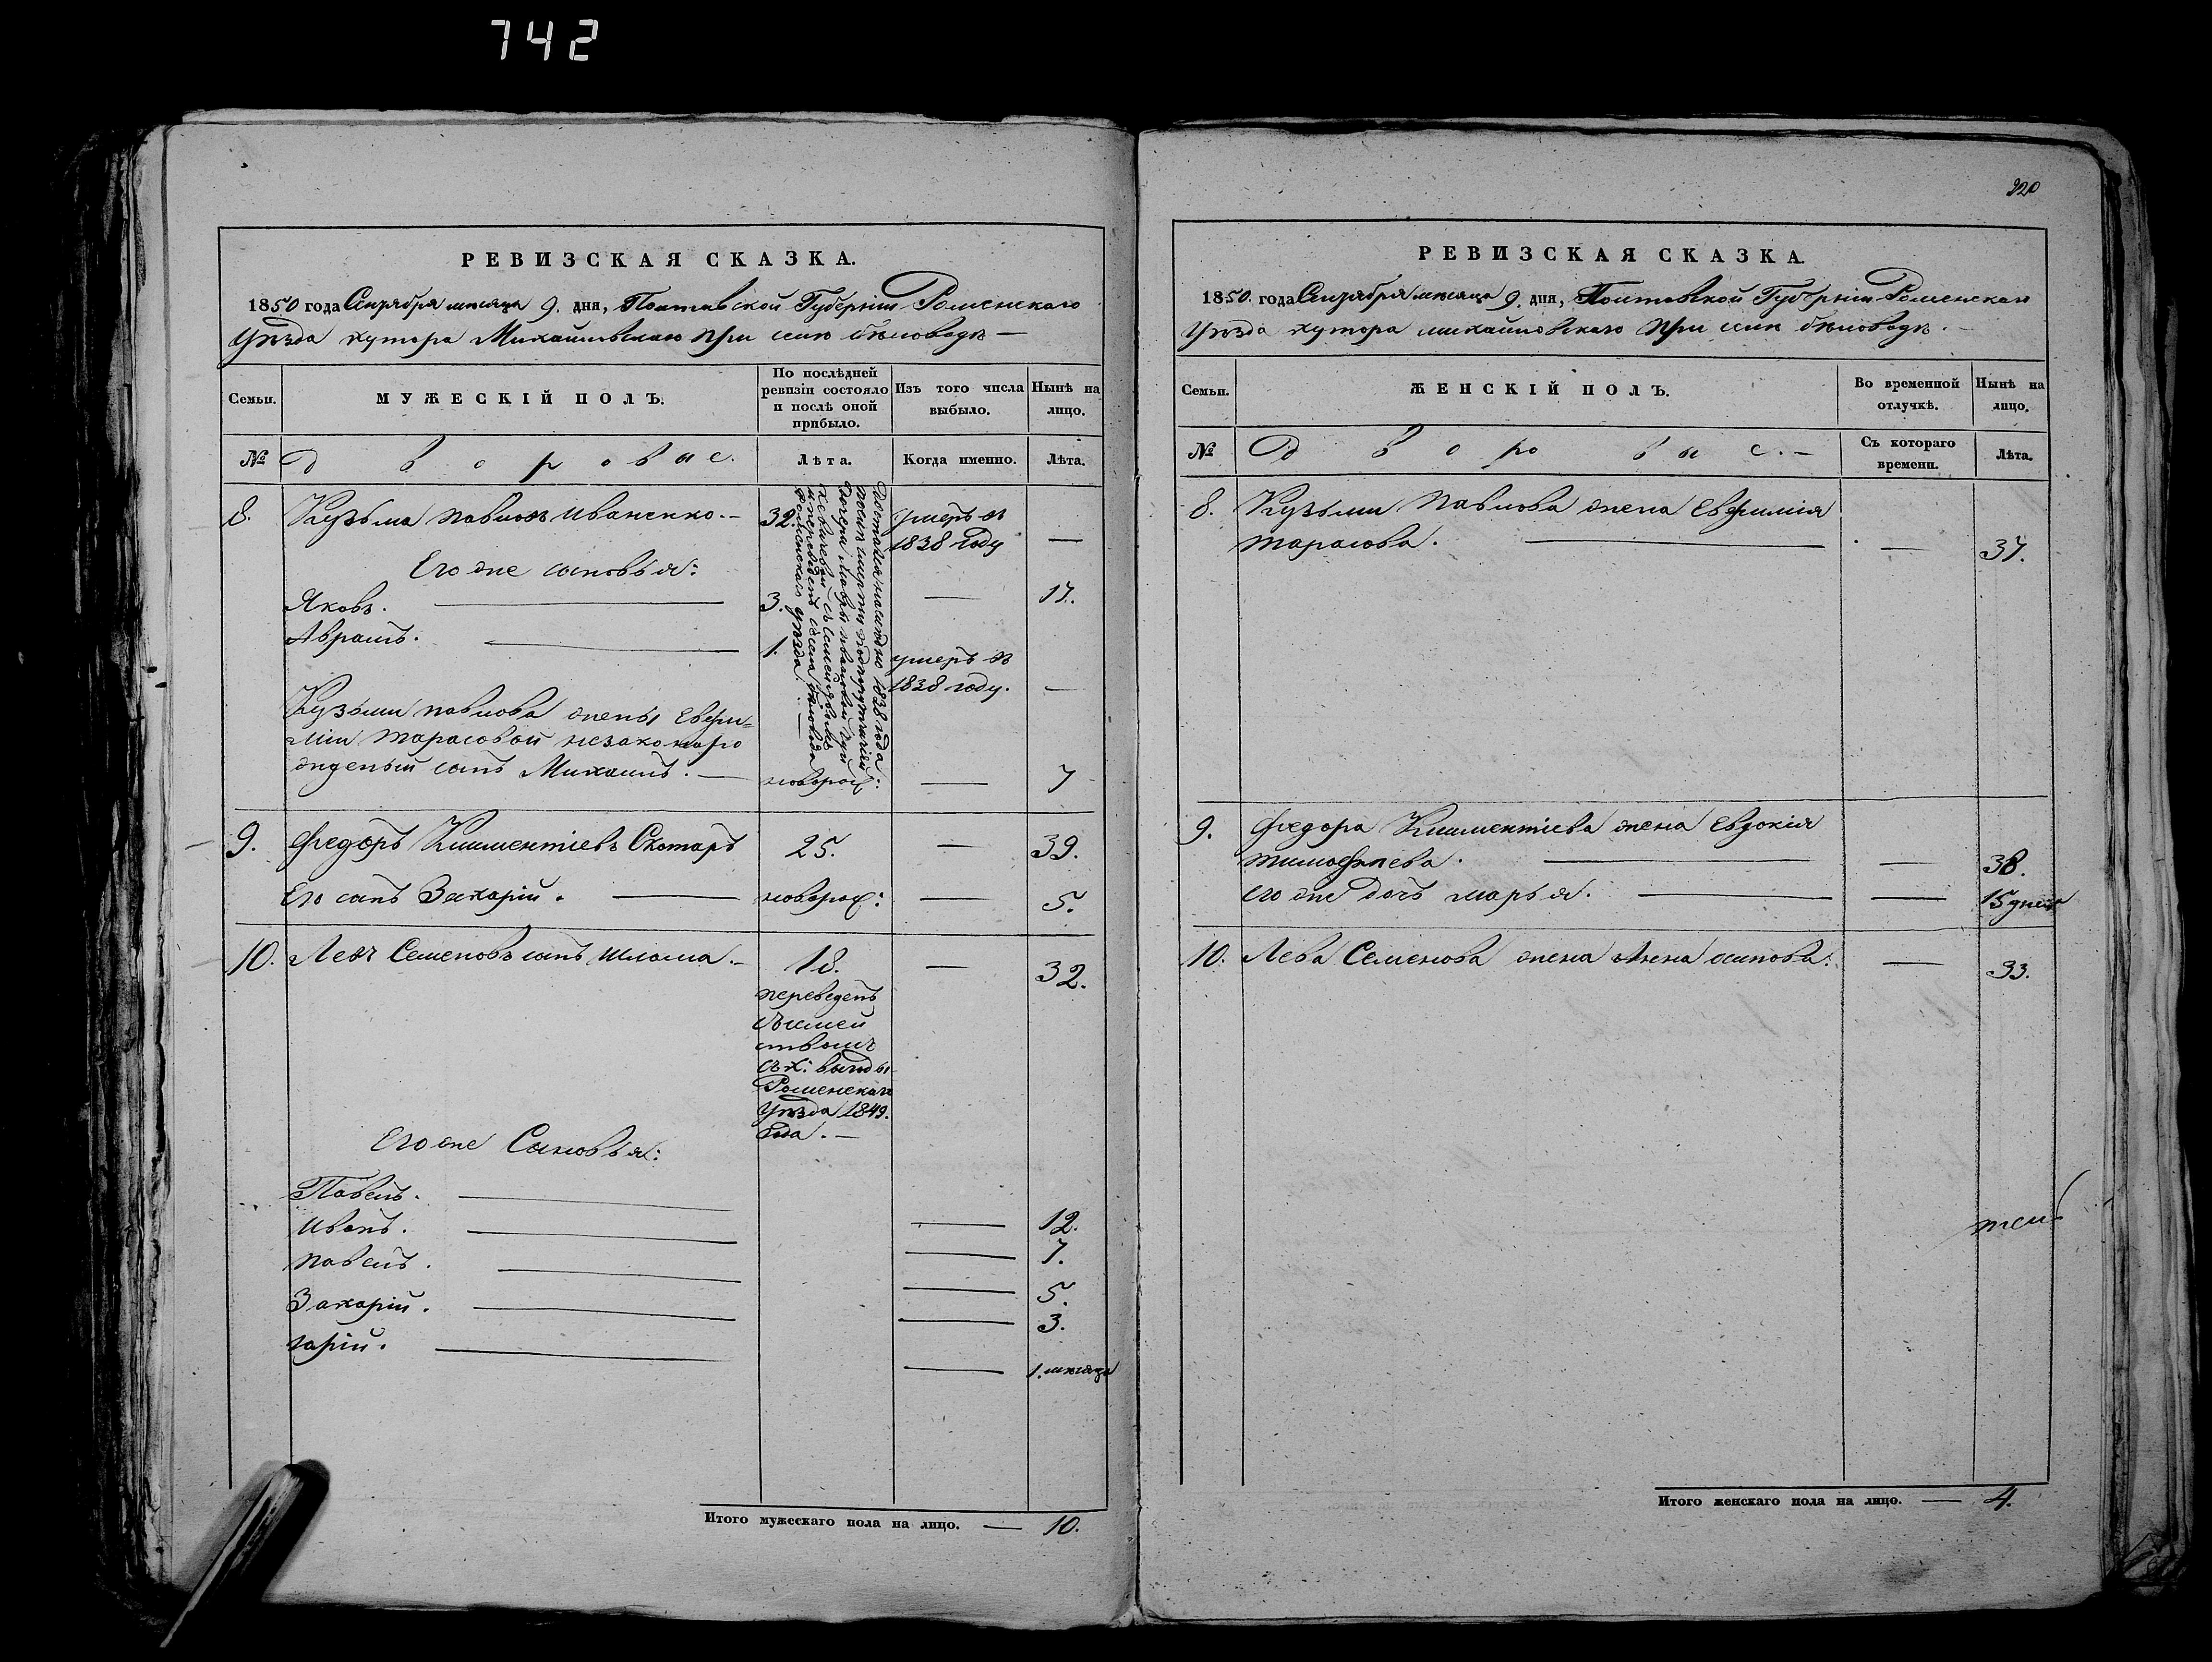 742
РЕВИЗСКАЯ СКАЗКА.
1850 года Сентября месяца 9. дня, Полтавской Губерніи Роменскаго
Уѣзда хутора Михайловскаго при селѣ Бѣловодѣ —
Семьи.
МУЖЕСКІЙ ПОЛЪ.
По послѣдней ревизіи состояло и послѣ оной прибыло.
Изъ того числа выбыло.
Нынѣ на лицо.
№
Дворовые.
Лѣта.
Когда именно.
Лѣта.
8.
Кузьма Павловъ Иваненко. —
32.
умеръ въ
1838 году
—
Его же сыновья:
Яковъ. —
3.
—
17.
Аврамъ. —
1.
умеръ въ
1838 году.
—
Достался на 1838 года
дочери Марьи Ивановой
Роменскаго уѣзда
Кузьмы Павлова жены Евфи=
міи Тарасовой незаконоро
жденный сынъ Михаилъ. —
новорож:
—
7
9.
Федоръ Климентіевъ Скотаръ
25.
—
39.
Его сынъ Захарій. —
новорож:
—
5.
10.
Левъ Семеновъ сынъ Шлома. —
18.
—
32.
переведенъ
съ семей
ствомъ
Роменскаго
Уѣзда 1849.
года. —
Его же Сыновья:
Павелъ. —
—
12.
Иванъ. —
—
7.
Павелъ. —
—
5.
Захарій. —
—
3.
—
1. мѣсяца
Итого мужескаго пола на лицо. — 10.
320
РЕВИЗСКАЯ СКАЗКА.
1850. года Сентября месяца 9. дня, Полтавской Губерніи Роменскаго
Уѣзда хутора Михайловскаго при селѣ Бѣловодѣ. —
Семьи.
ЖЕНСКІЙ ПОЛЪ.
Во временной отлучкѣ.
Нынѣ на лицо.
№
Дворовые. —
Съ котораго времени.
Лѣта.
8.
Кузьмы Павлова жена Евфимія
Тарасова. —
—
37.
9.
Федора Климентіева жена Евдокія
Тимофѣева. —
—
38.
Его же дочь Марья. —
—
15 дней
10.
Лева Семенова жена Анна Осипова.
—
33.
Итого женскаго пола на лицо. — 4.